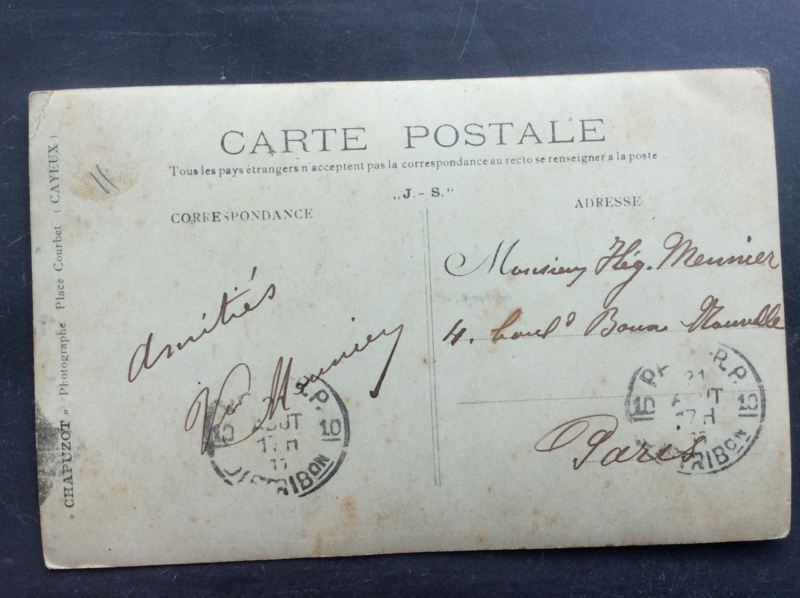 CARTE POSTALE
Tous les pays étrangers n'acceptent pas la correspondance au recto se renseigner a la poste
„J.- S.“
CORRESPONDANCE
ADRESSE
"CHAPUZOT" Photographe Place Courbet (CAYEUX)
Amitiés
Vor Meunier
Monsieur Hég. Meunier
4. boul d Bonne Nouvelle
Paris
R.P.
10 AOUT 10
17 H
DISTRIBON
R.P.
21
10 AOUT 10
17 H
DISTRIBON